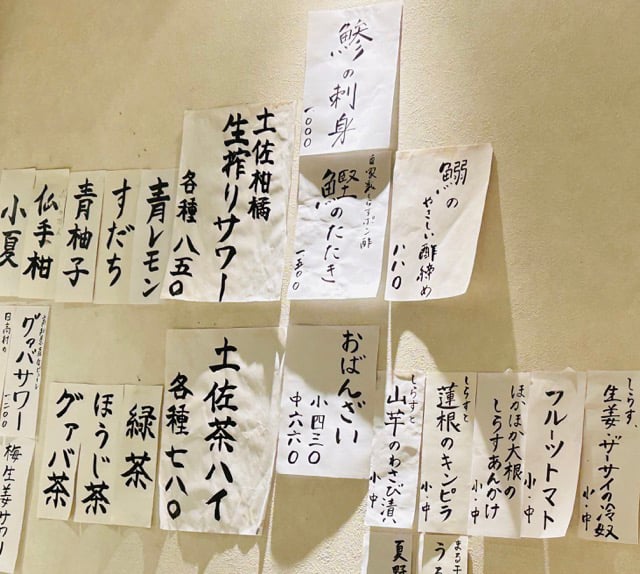 鰺の刺身
一〇〇〇
自家製もろみポン酢
鰹のたたき
一五〇〇
鰯の
やさしい酢締め
八八〇
土佐柑橘
生搾りサワー
各種 八五〇
青レモン
すだち
青柚子
仏手柑
小夏
おばんざい
小 四三〇
中 六六〇
しらす、
生姜・ザーサイの冷奴
小・中
フルーツトマト
小・中
ほかほか大根の
しらすあんかけ
小・中
しらすと
蓮根のキンピラ
小・中
しらすと
山芋のわさび漬け
小・中
土佐茶ハイ
各種 七八〇
緑茶
ほうじ茶
グァバ茶
グァバサワー
一二〇〇
日高村の
梅生姜サワー
夏野
まる干
うる